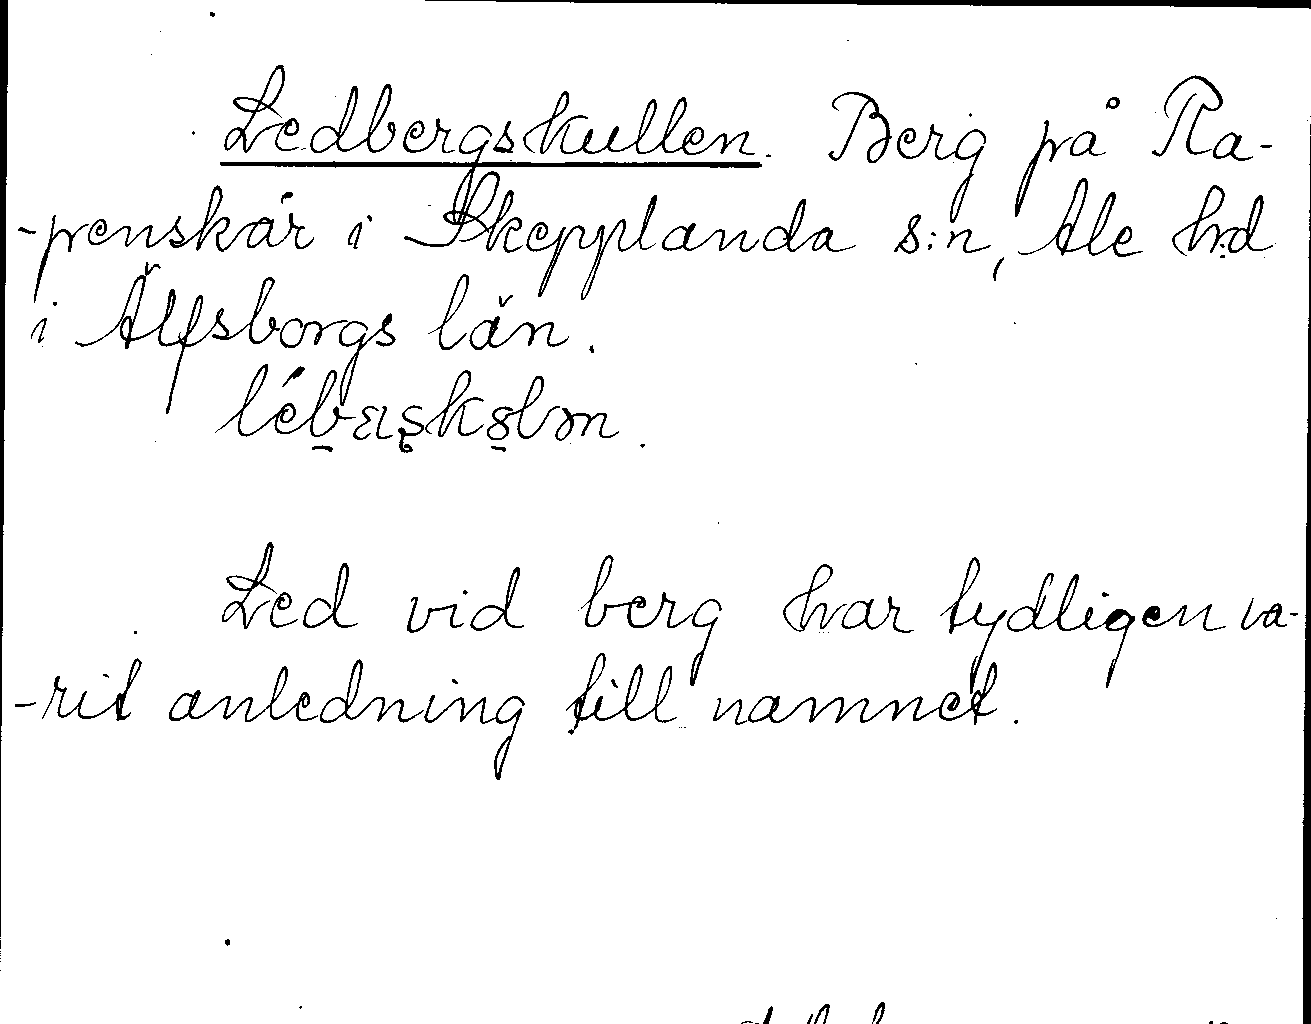 Ledbergskullen. Berg på Ra-
-penskär i Skepplanda s:n, Ale h:d
i Älfsborgs län.
Led vid berg har tydligen va-
-rit anledning till namnet.